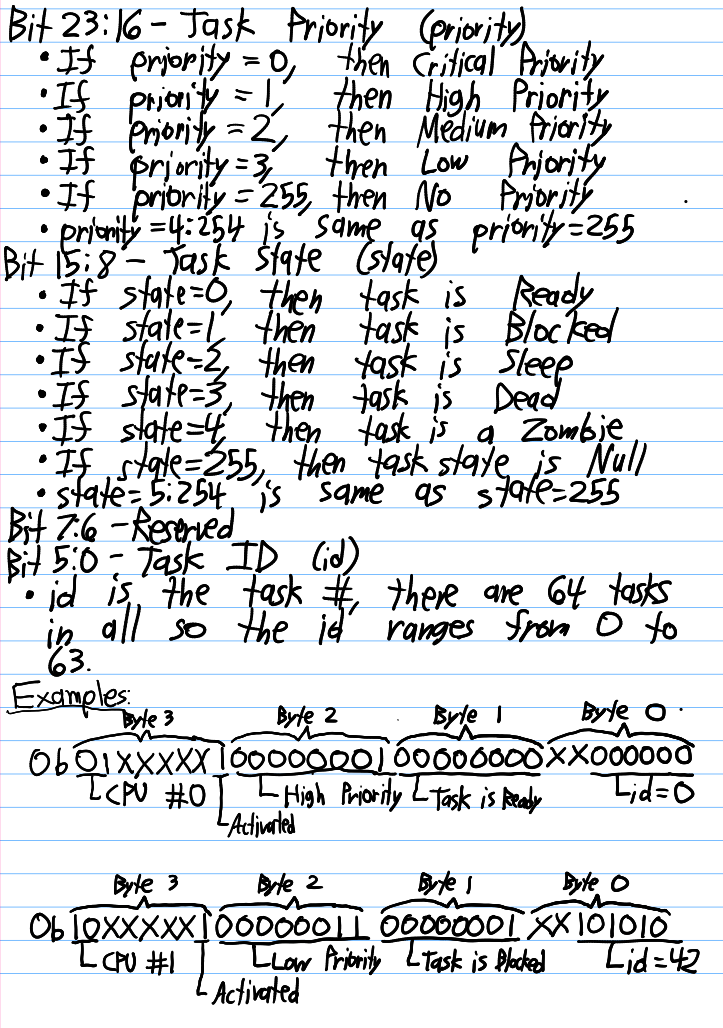 Bit 23:16 - Task Priority (priority)
• If priority = 0, then Critical Priority
• If priority = 1, then High Priority
• If priority = 2, then Medium Priority
• If priority = 3, then Low Priority
• If priority = 255, then No Priority
• priority = 4:254 is same as priority=255
Bit 15:8 - Task State (state)
• If state=0, then task is Ready
• If state=1, then task is Blocked
• If state=2, then task is Sleep
• If state=3, then task is Dead
• If state=4, then task is a Zombie
• If state=255, then task state is Null
• state=5:254 is same as state=255
Bit 7:6 - Reserved
Bit 5:0 - Task ID (id)
• id is the task #, there are 64 tasks
in all so the id ranges from 0 to
63.
Examples:
Byte 3 Byte 2 Byte 1 Byte 0
0b 01XXXXX1 00000001 00000000 XX000000
CPU #0 High Priority Task is Ready id=0
Activated
Byte 3 Byte 2 Byte 1 Byte 0
0b 10XXXXX1 00000011 00000001 XX101010
CPU #1 Low Priority Task is Blocked id=42
Activated